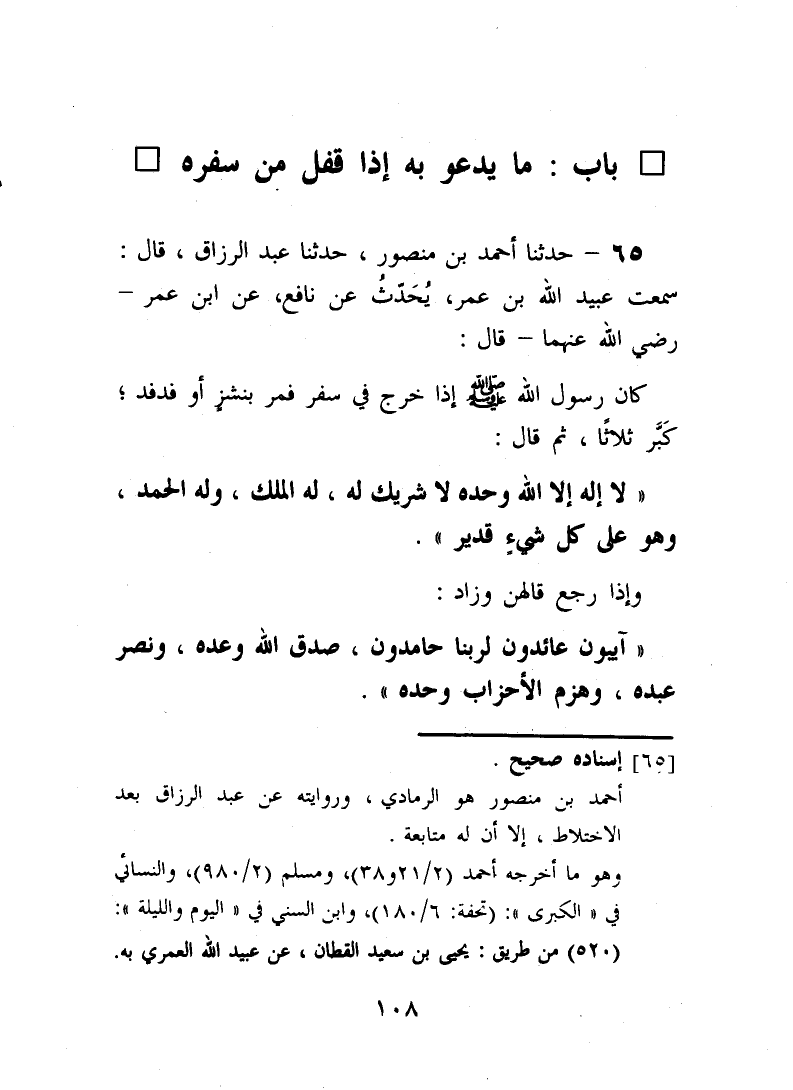 □ باب : ما يدعو به إذا قفل من سفره □
٦٥ – حدثنا أحمد بن منصور ، حدثنا عبد الرزاق ، قال :
سمعت عبيد الله بن عمر، يُحَدّثُ عن نافع، عن ابن عمر –
رضي الله عنهما – قال :
كان رسول الله ﷺ إذا خرج في سفر فمر بنشزٍ أو فدفد ؛
كَبَّر ثلاثًا ، ثم قال :
« لا إله إلا الله وحده لا شريك له ، له الملك ، وله الحمد ،
وهو على كل شيءٍ قدير » .
وإذا رجع قالهن وزاد :
« آيبون عائدون لربنا حامدون ، صدق الله وعده ، ونصر
عبده ، وهزم الأحزاب وحده » .
[٦٥] إسناده صحيح .
أحمد بن منصور هو الرمادي ، وروايته عن عبد الرزاق بعد
الاختلاط ، إلا أن له متابعة .
وهو ما أخرجه أحمد (٢١/٢و٣٨)، ومسلم (٩٨٠/٢)، والنسائي
في « الكبرى »: (تحفة: ١٨٠/٦)، وابن السني في « اليوم والليلة »:
(٥٢٠) من طريق : يحيى بن سعيد القطان ، عن عبيد الله العمري به.
١٠٨